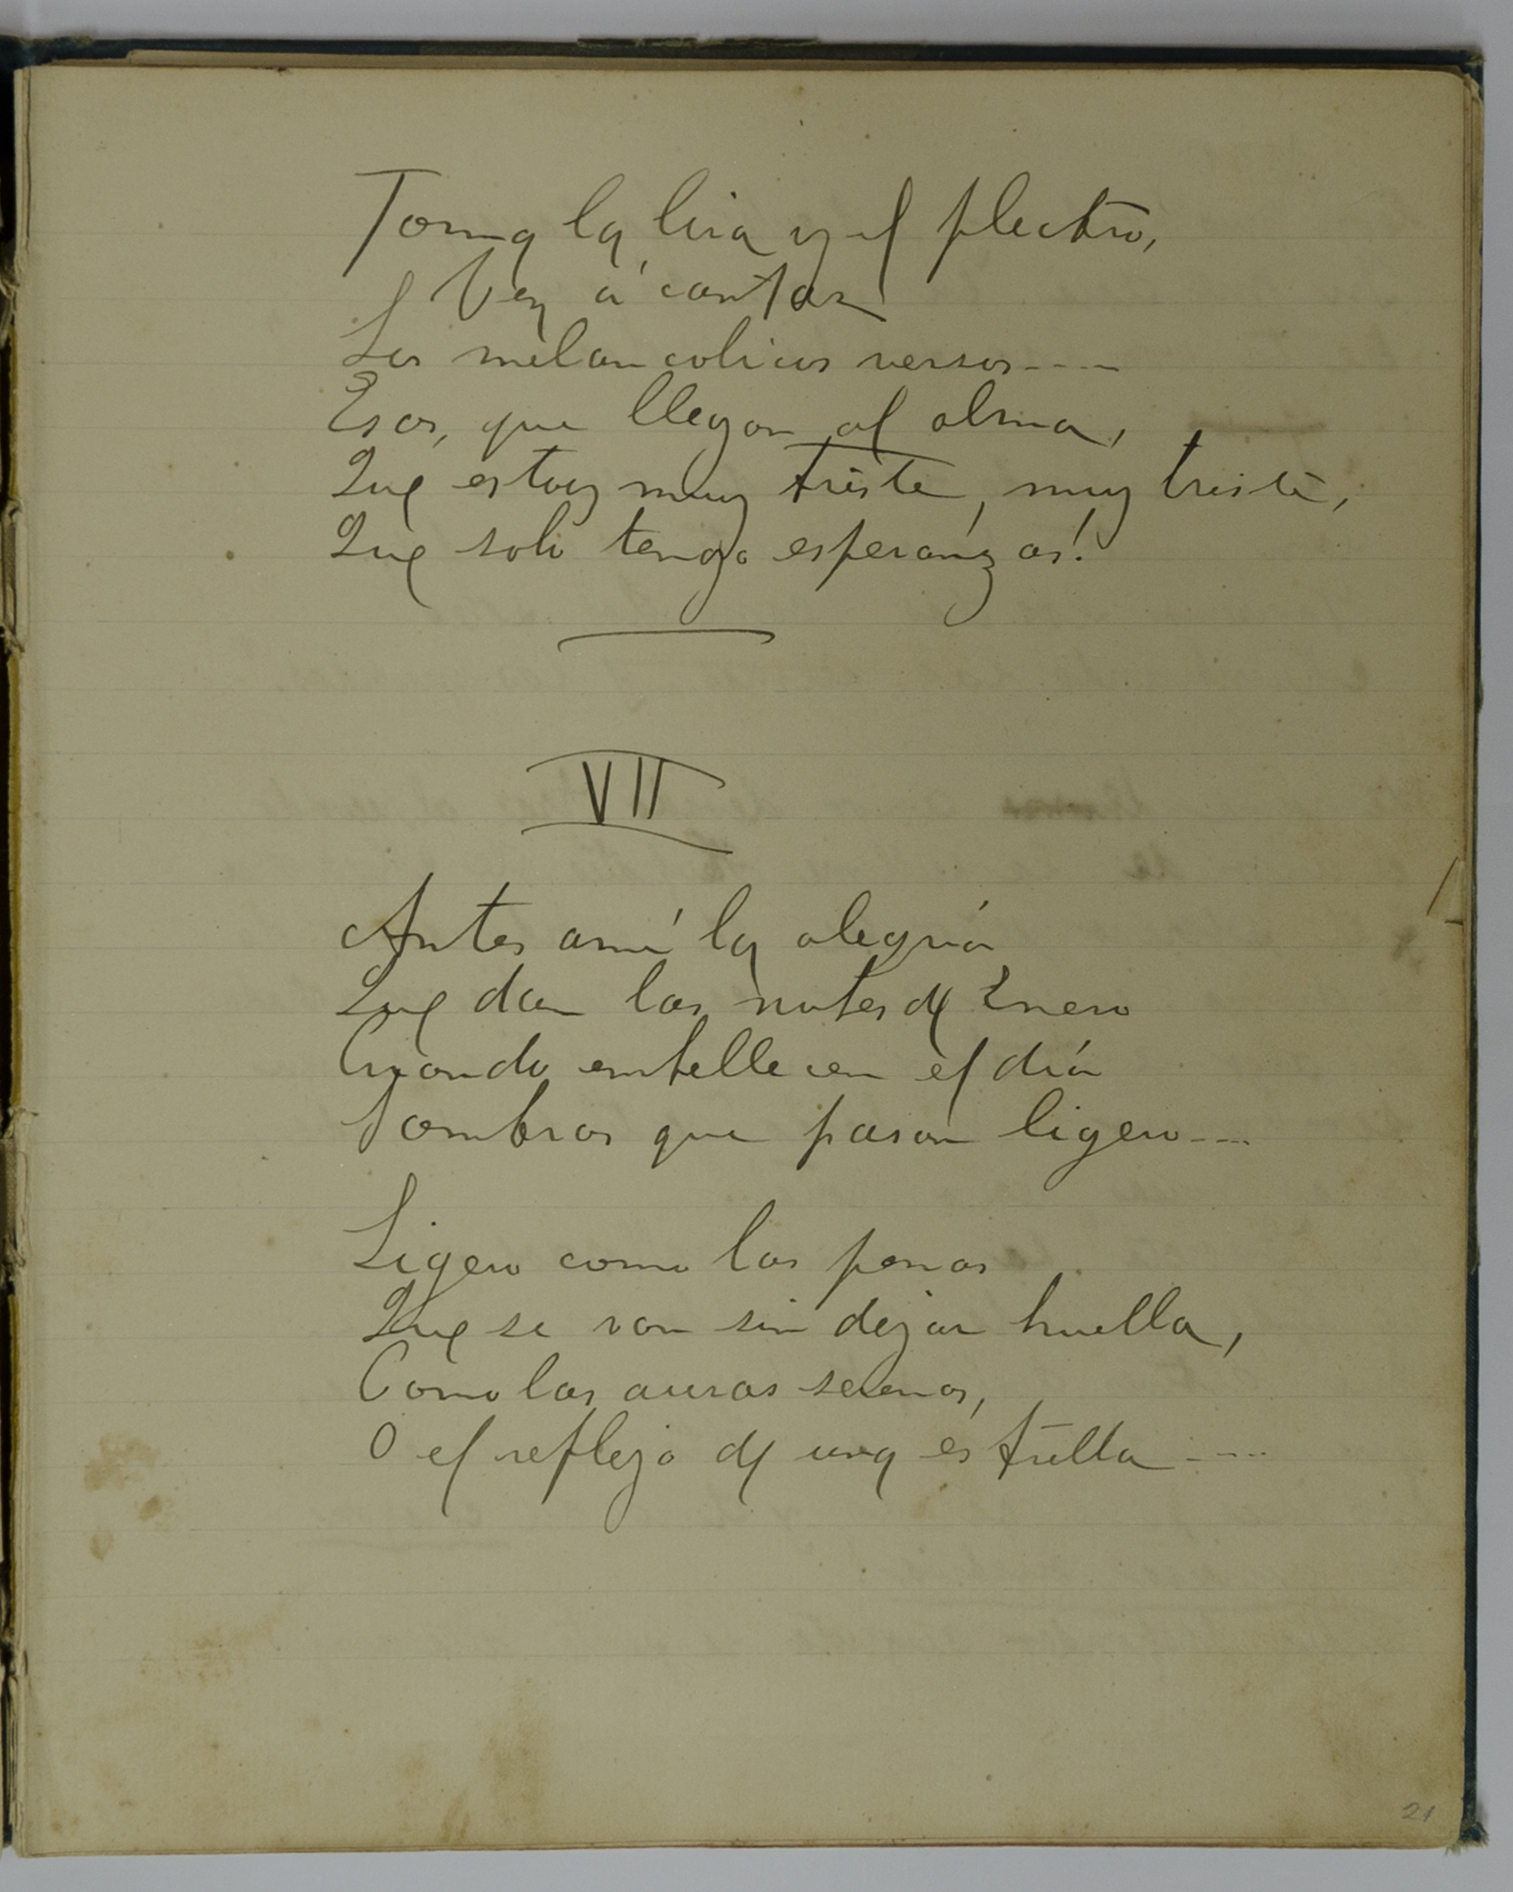 Toma la lira y el plectro,
Ven á cantar
Los melancolicos versos....
Esos, que llegan al alma,
Que estoy muy triste, muy triste,
Que solo tengo esperanzas!
VII
Antes amé la alegría
Que dan las notes de Enero
Cuando embellecen el día
Sombras que pasan ligero....
Ligero como las penas
Que se van sin dejar huella,
Como las auras serenas,
O el reflejo de una estrella....
21